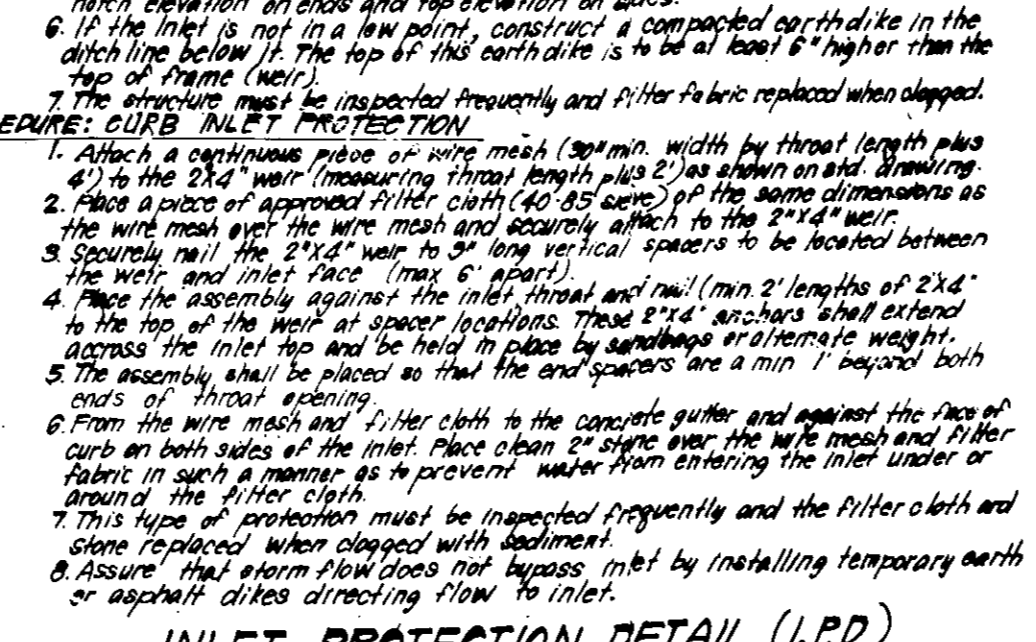 notch elevation on ends and top elevation on sides.
6. If the Inlet is not in a low point, construct a compacted earth dike in the
ditch line below it. The top of this earth dike is to be at least 6" higher than the
top of frame (weir).
7. The structure must be inspected frequently and filter fabric replaced when clogged.
EDURE: CURB INLET PROTECTION
1. Attach a continuous piece of wire mesh (30" min. width by throat length plus
4') to the 2X4" weir (measuring throat length plus 2') as shown on std. drawing.
2. Place a piece of approved filter cloth (40-85 sieve) of the same dimensions as
the wire mesh over the wire mesh and securely attach to the 2"X4" weir.
3. Securely nail the 2"X4" weir to 9" long vertical spacers to be located between
the weir and inlet face (max 6' apart).
4. Place the assembly against the inlet throat and nail (min. 2' lengths of 2"X4"
to the top of the weir at spacer locations. These 2"X4" anchors shall extend
accross the inlet top and be held in place by sandbags or alternate weight.
5. The assembly shall be placed so that the end spacers are a min 1' beyond both
ends of throat opening.
6. From the wire mesh and filter cloth to the concrete gutter and against the face of
curb on both sides of the inlet. Place clean 2" stone over the wire mesh and filter
fabric in such a manner as to prevent water from entering the inlet under or
around the filter cloth.
7. This type of protection must be inspected frequently and the filter cloth and
stone replaced when clogged with sediment.
8. Assure that storm flow does not bypass inlet by installing temporary earth
or asphalt dikes directing flow to inlet.
INLET PROTECTION DETAIL (I.P.D)